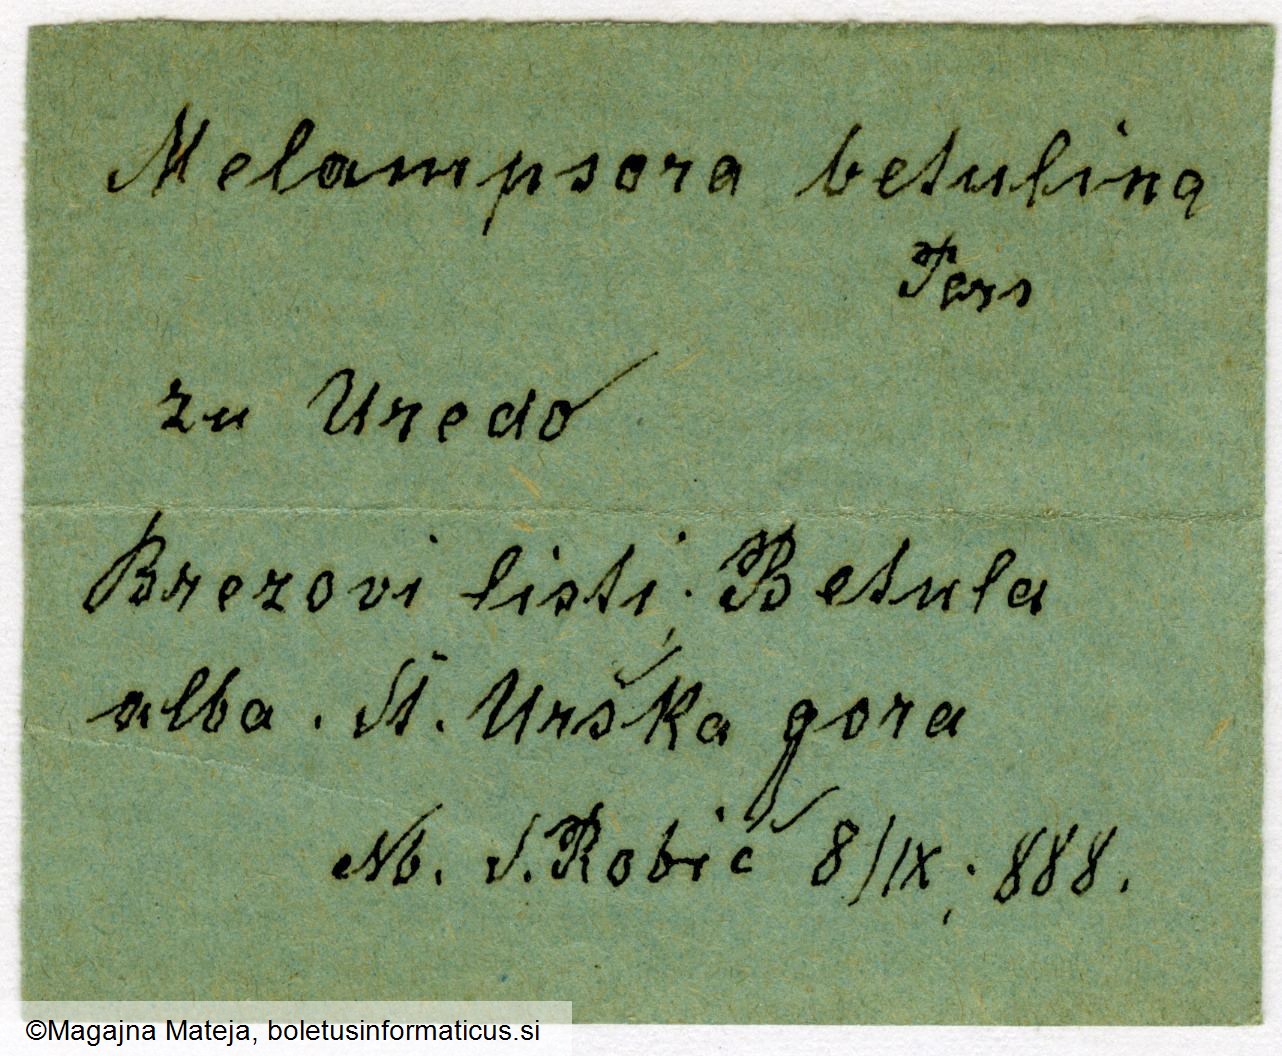 Melampsora betulina
Pers
zu Uredo
Brezovi listi; Betula
alba. St. Urška gora
Nb. S. Robič 8/IX; 888.
©Magajna Mateja, boletusinformaticus.si